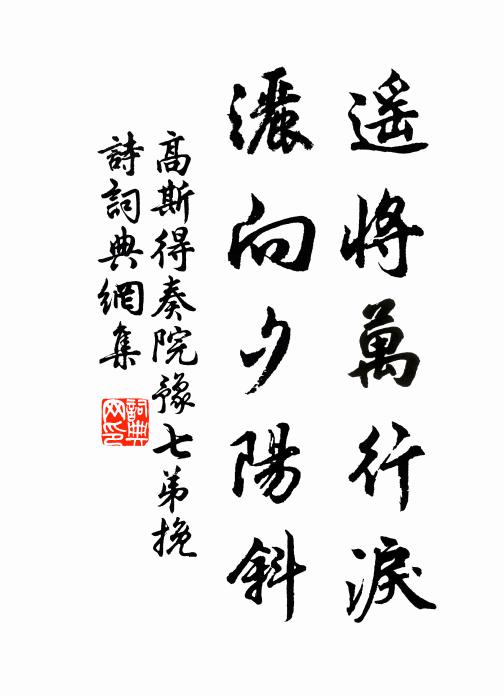 遥將萬行淚
灑向夕陽斜
高斯得奏院豫七弟挽
詩詞典網集
詞典
网印